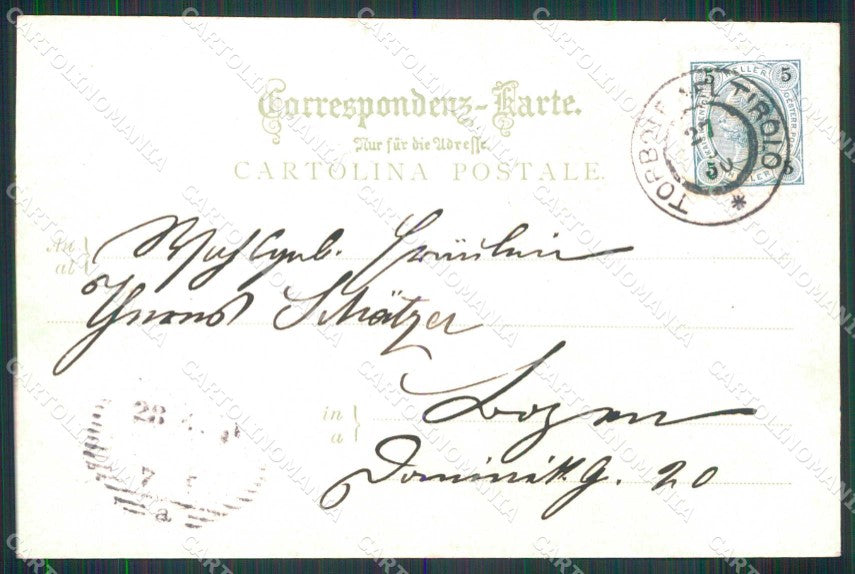 Correspondenz-Karte.
Nur für die Adresse.
CARTOLINA POSTALE.
5 5
5 5
TORBOLE TIROLO
21
An
al
Wohlgeb. Fräulein
Schätzer
in
a
Bozen
Dominik. G. 20
28
7
a
CARTOLINOMANIA